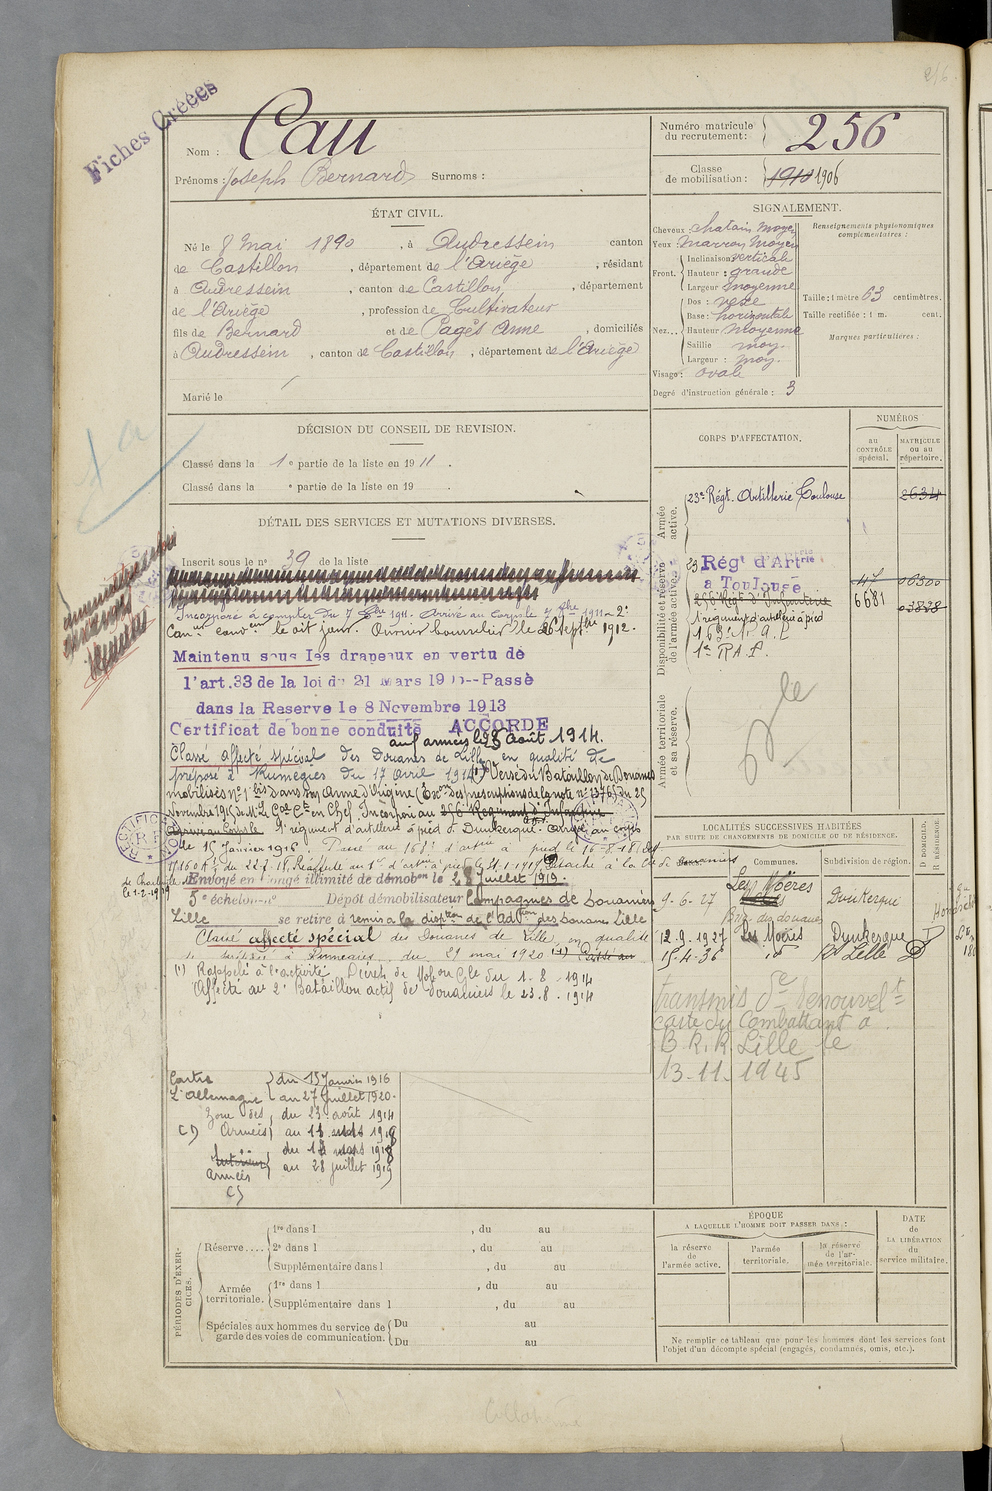 Fiches Créées
Nom : Cau
Prénoms : Joseph Bernard Surnoms :
Numéro matricule du recrutement : 256
Classe de mobilisation : 1910 1906
ÉTAT CIVIL.
Né le 8 Mai 1890, à Audressein canton
de Castillon, département de l'Ariège, résidant
à Audressein, canton de Castillon, département
de l'Ariège, profession de Cultivateur
fils de Bernard et de Pagès Anne, domiciliés
à Audressein, canton de Castillon, département de l'Ariège
Marié le
SIGNALEMENT.
Cheveux : chatain moyen
Yeux : Marron Moyen
Front. Inclinaison verticale
Hauteur : grande
Largeur moyenne
Nez... Dos : vexe
Base : horizontale
Hauteur moyenne
Saillie moy.
Largeur : moy.
Visage : ovale
Degré d'instruction générale : 3
Renseignements physionomiques complémentaires :
Taille : 1 mètre 63 centimètres.
Taille rectifiée : 1 m. cent.
Marques particulières :
DÉCISION DU CONSEIL DE REVISION.
Classé dans la 1e partie de la liste en 1911.
Classé dans la e partie de la liste en 19 .
DÉTAIL DES SERVICES ET MUTATIONS DIVERSES.
Inscrit sous le n° 39 de la liste
Incorporé à compter du 7 8bre 1911. Arrivé au Corps le 1911 2e
Can. cond. le dit jour. Ouvrier bourrelier le 26 Septbre 1912.
Maintenu sous les drapeaux en vertu de
l'art. 33 de la loi du 21 Mars 1905--Passé
dans la Reserve le 8 Novembre 1913
Certificat de bonne conduite ACCORDE
aux armées le 23 Août 1914.
Classé affecté spécial des Douanes de Lille en qualité de
préposé à Rumegies du 17 avril 1914 (1) Versé du Bataillon de Douanes
mobilisés n° 1 bis dans son Arme d'Origine (Exon des prescriptions de la note n° 13765 du 25
Novembre 1915 de M. le Gal Ct en Chef. Incorporé au 256e Régiment d'Infanterie
1er régiment d'artillerie à pied à Dunkerque. Arrivé au corps
le 15 Janvier 1916 Passé au 163e d'artie à pied le 16-8-18
Envoyé en congé illimité de démobon le 28 Juillet 1919.
5e échelon n° Dépôt démobilisateur Compagnies de Douaniers
Lille se retire à remis à la dispton de l'Adtion des Douanes Lille
Classé affecté spécial des Douanes de Lille, en qualité
de préposé à Rumegies, du 29 mai 1920
(1) Rappelé à l'activité Décret de Mobon Gle du 1.8.1914
Affecté au 2e Bataillon actif de Douaniers le 23.8.1914
Contre L'Allemagne du 15 Janvier 1916
au 27 Juillet 1920.
Zone des Armées du 23 août 1914
CD au 18 mars 1918
Intérieur du 18 mars 1918
Armées au 28 juillet 1919
CD
CORPS D'AFFECTATION.
NUMÉROS
au CONTRÔLE spécial.
MATRICULE ou au répertoire.
Armée active.
23e Régt. Artillerie Toulouse 2634
Disponibilité et réserve de l'armée active.
23 Régt d'Artrie
a Toulouse 06300
256 Régt d'Infanterie 6681
1er régiment d'artillerie à pied
163e R. A. P.
1er R A P.
Armée territoriale et sa réserve.
LOCALITÉS SUCCESSIVES HABITÉES
PAR SUITE DE CHANGEMENTS DE DOMICILE OU DE RÉSIDENCE.
Communes.
Subdivision de région.
D DOMICILE. R RÉSIDENCE.
9-6-27 Les Moëres Dunkerque
Brig. des douanes
12.9.1927 Les Moëres Dunkerque D
15.4.36 id Lille D
Transmis de renouvelt
carte du Combattant à
B.R.R. Lille le
13.11.1945
PÉRIODES D'EXERCICES.
Réserve.... 1re dans l , du au
2e dans l , du au
Supplémentaire dans l , du au
Armée territoriale. 1re dans l , du au
Supplémentaire dans l , du au
Spéciales aux hommes du service de garde des voies de communication. Du au
Du au
ÉPOQUE
A LAQUELLE L'HOMME DOIT PASSER DANS :
la réserve de l'armée active.
l'armée territoriale.
la réserve de l'armée territoriale.
DATE de LA LIBÉRATION du service militaire.
Ne remplir ce tableau que pour les hommes dont les services font
l'objet d'un décompte spécial (engagés, condamnés, omis, etc.).